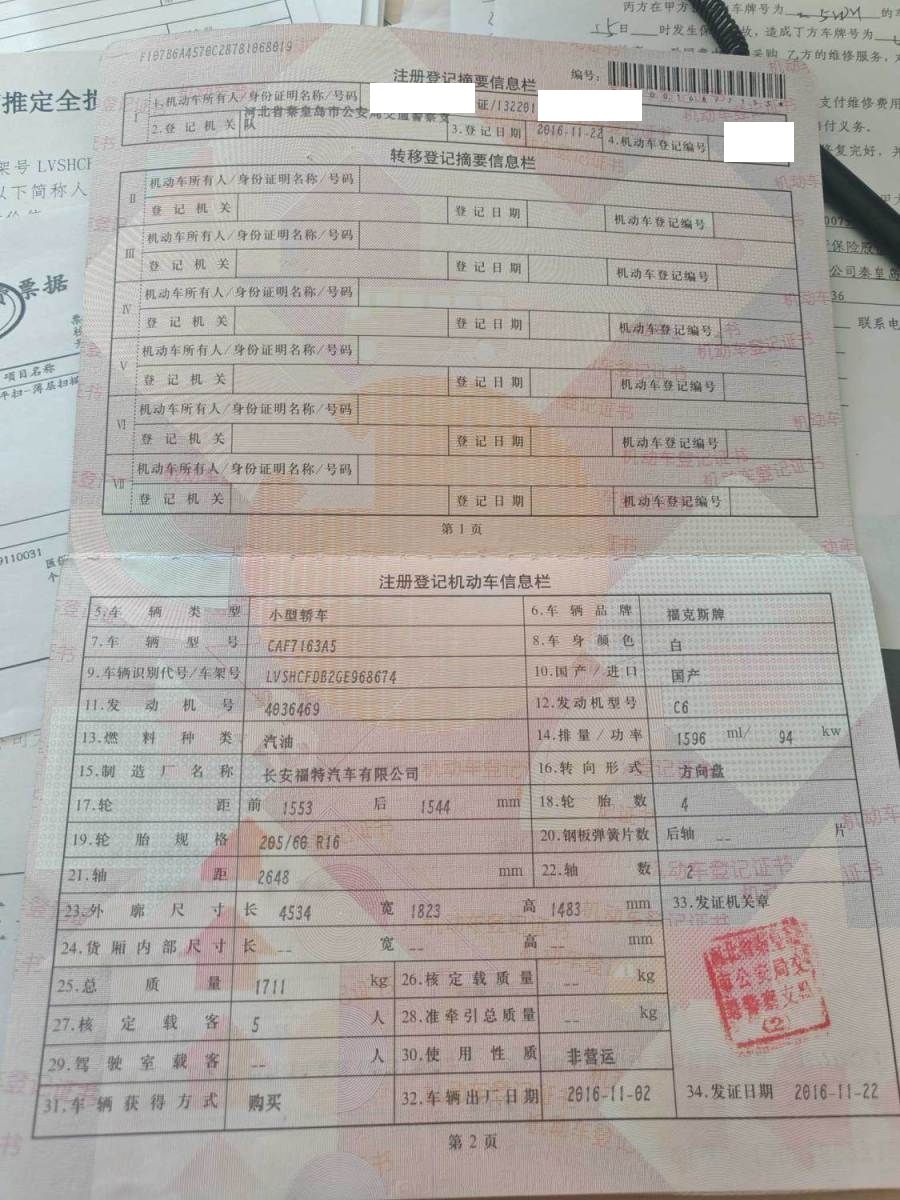 丙方在甲方
车牌号为
的车
5日
时发生保
故，造成丁方车牌号为
采购
乙方的维修服务，
F107B6A4570C28781068019
注册登记摘要信息栏
编号：
推定全损
支付维修费用
付义务。
I
1.机动车所有人/身份证明名称/号码
证/132201
河北省秦皇岛市公安局交通警察支队
2.登记机关
3.登记日期
2016-11-22
4.机动车登记编号
架号 LVSHCF
以下简称人
修复完好，并
转移登记摘要信息栏
II
机动车所有人/身份证明名称/号码
登记机关
登记日期
机动车登记编号
III
机动车所有人/身份证明名称/号码
登记机关
登记日期
机动车登记编号
保险股
公司秦皇岛
票据
IV
机动车所有人/身份证明名称/号码
登记机关
登记日期
机动车登记编号
36
联系电
项目名称
平扫-薄层扫描
V
机动车所有人/身份证明名称/号码
登记机关
登记日期
机动车登记编号
VI
机动车所有人/身份证明名称/号码
登记机关
登记日期
机动车登记编号
VII
机动车所有人/身份证明名称/号码
登记机关
登记日期
机动车登记编号
第1页
9110031
医保
个
注册登记机动车信息栏
5.车辆类型 小型轿车 6.车辆品牌 福克斯牌
7.车辆型号 CAF7163A5 8.车身颜色 白
9.车辆识别代号/车架号 LVSHCFDB2GE968674 10.国产/进口 国产
11.发动机号 4036469 12.发动机型号 C6
13.燃料种类 汽油 14.排量/功率 1596 ml/ 94 kw
15.制造厂名称 长安福特汽车有限公司 16.转向形式 方向盘
17.轮距 前 1553 后 1544 mm 18.轮胎数 4
19.轮胎规格 205/60 R16 20.钢板弹簧片数 后轴 -- 片
21.轴距 2648 mm 22.轴数 2
23.外廓尺寸 长 4534 宽 1823 高 1483 mm 33.发证机关章
24.货厢内部尺寸 长 -- 宽 -- 高 -- mm
25.总质量 1711 kg 26.核定载质量 -- kg
27.核定载客 5 人 28.准牵引总质量 -- kg
29.驾驶室载客 -- 人 30.使用性质 非营运
31.车辆获得方式 购买 32.车辆出厂日期 2016-11-02 34.发证日期 2016-11-22
市公安局交
(2)
第2页